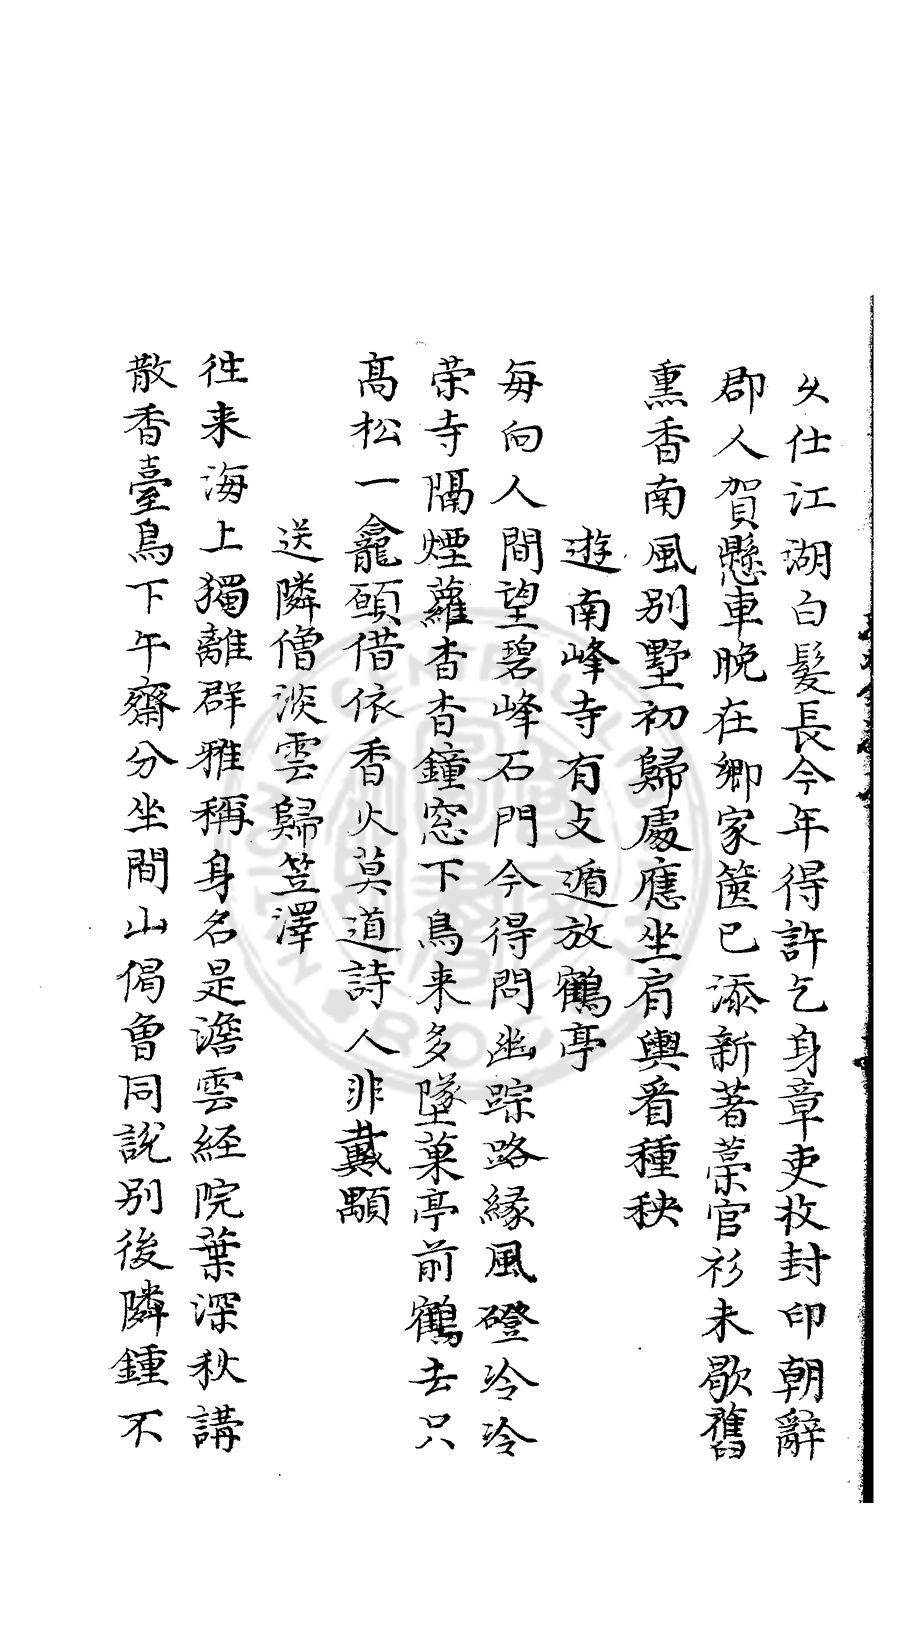 久仕江湖白髮長今年得許乞身章吏收封印朝辭
郡人賀懸車晚在鄉家篋已添新著藁官衫未歇舊
熏香南風別墅初歸處應坐肩輿看種秧
遊南峰寺有支遁放鶴亭
每向人間望碧峰石門今得問幽踪路緣風磴泠泠
榮寺隔煙蘿杳杳鐘窓下鳥来多墜菓亭前鶴去只
髙松一龕願借依香火莫道詩人非戴顒
送隣僧淡雲歸笠澤
徃来海上獨離群雅稱身名是澹雲經院葉深秋講
散香臺鳥下午齋分坐間山偈曾同說別後隣鍾不